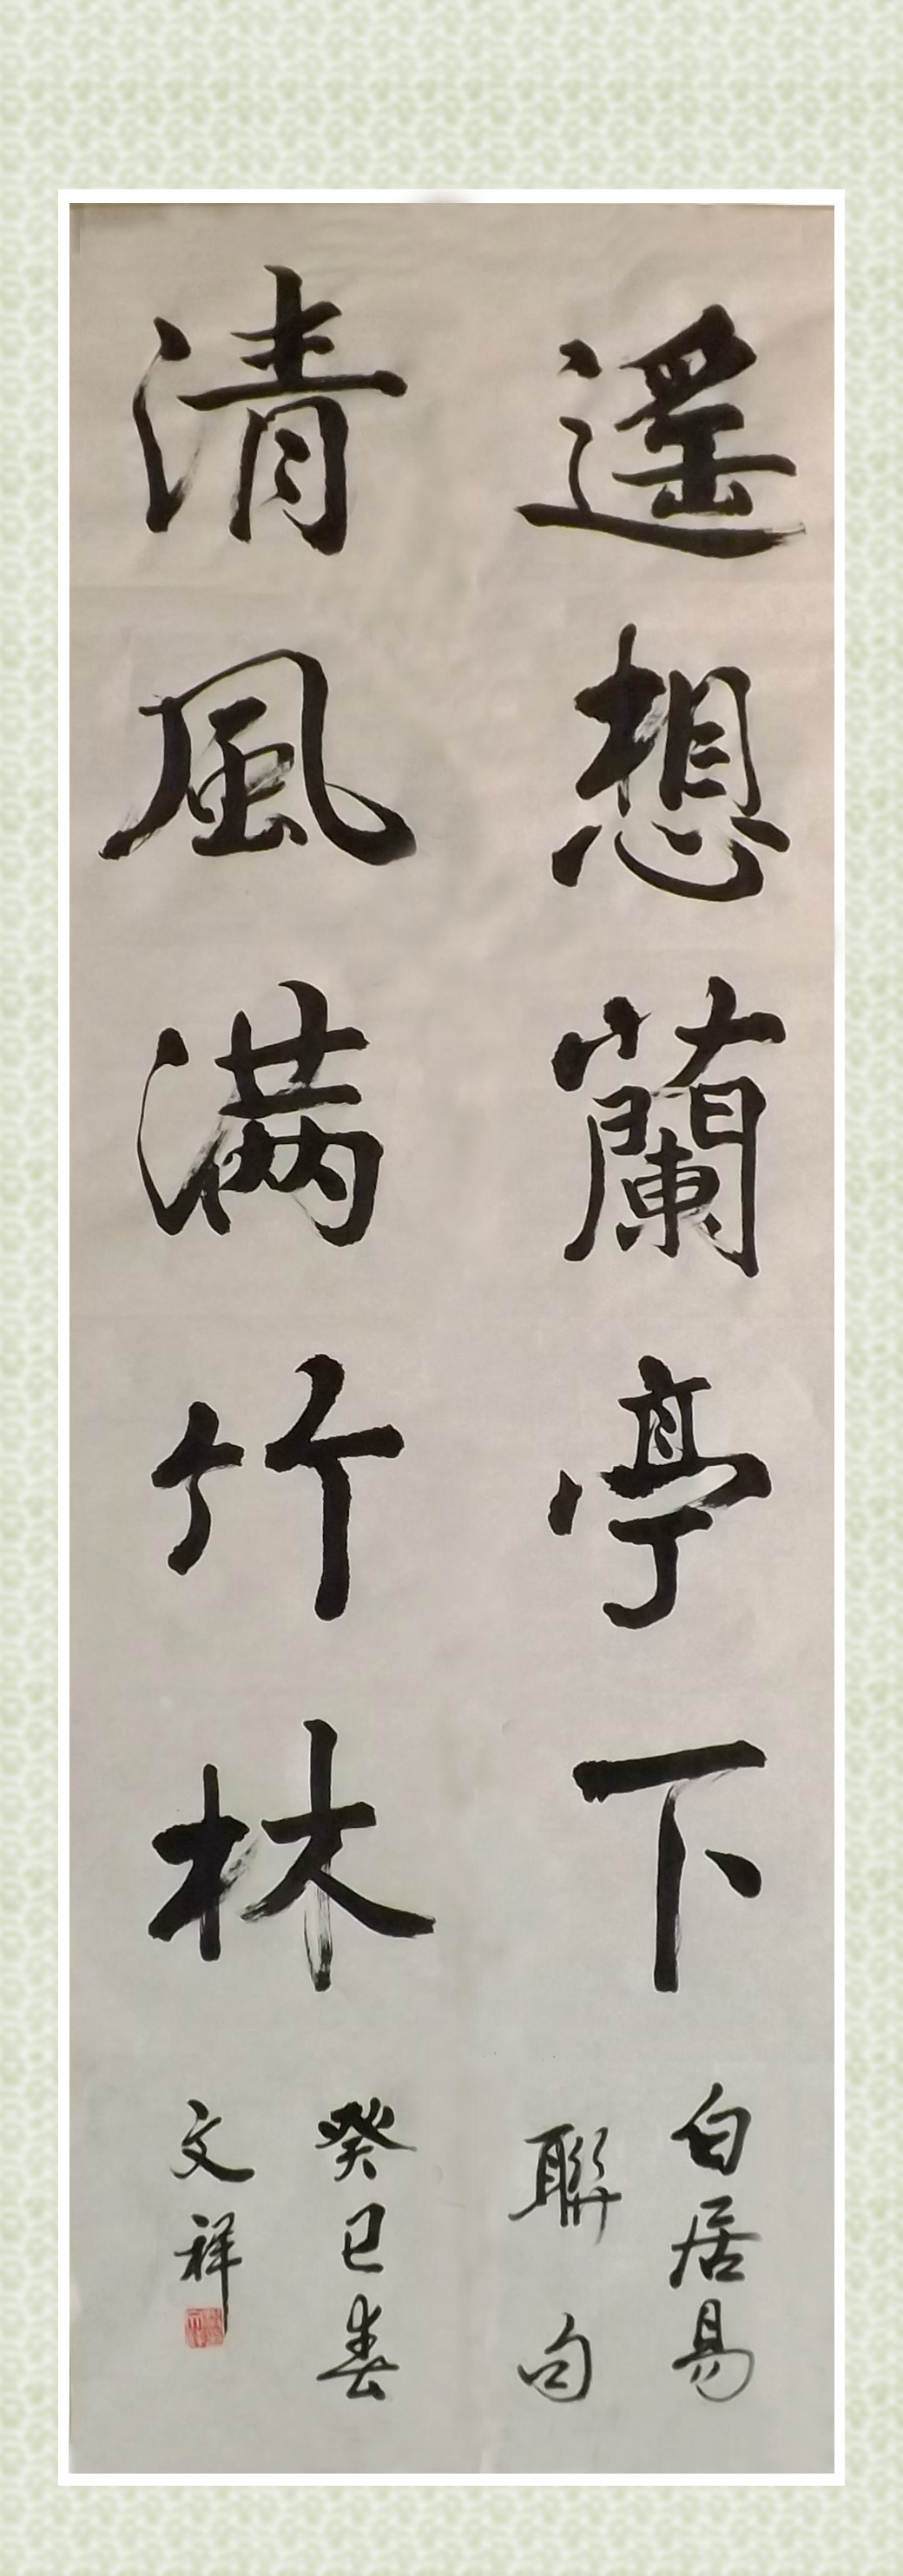 遥想蘭亭下
清風满竹林
白居易
聯句
癸巳春
文祥